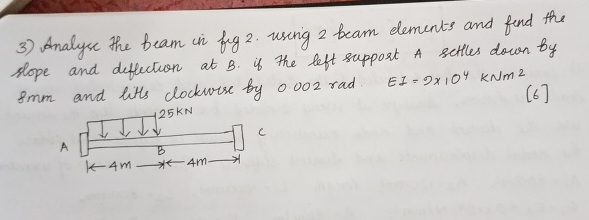 3) Analyse the beam in fig 2. using 2 beam elements and find the
slope and deflection at B. if the left support A settles down by
8mm and tilts clockwise by 0.002 rad EI = 2x10⁴ KNm²
[6]
25KN
A
C
B
4m 4m